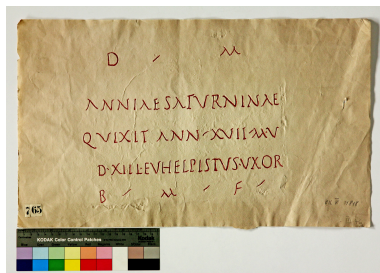 D M
ANNIAE SATURNINAE
QVIXIT ANN XVII MV
D XII LEVHELPISTVS VXOR
B M F
765
KODAK Color Control Patches